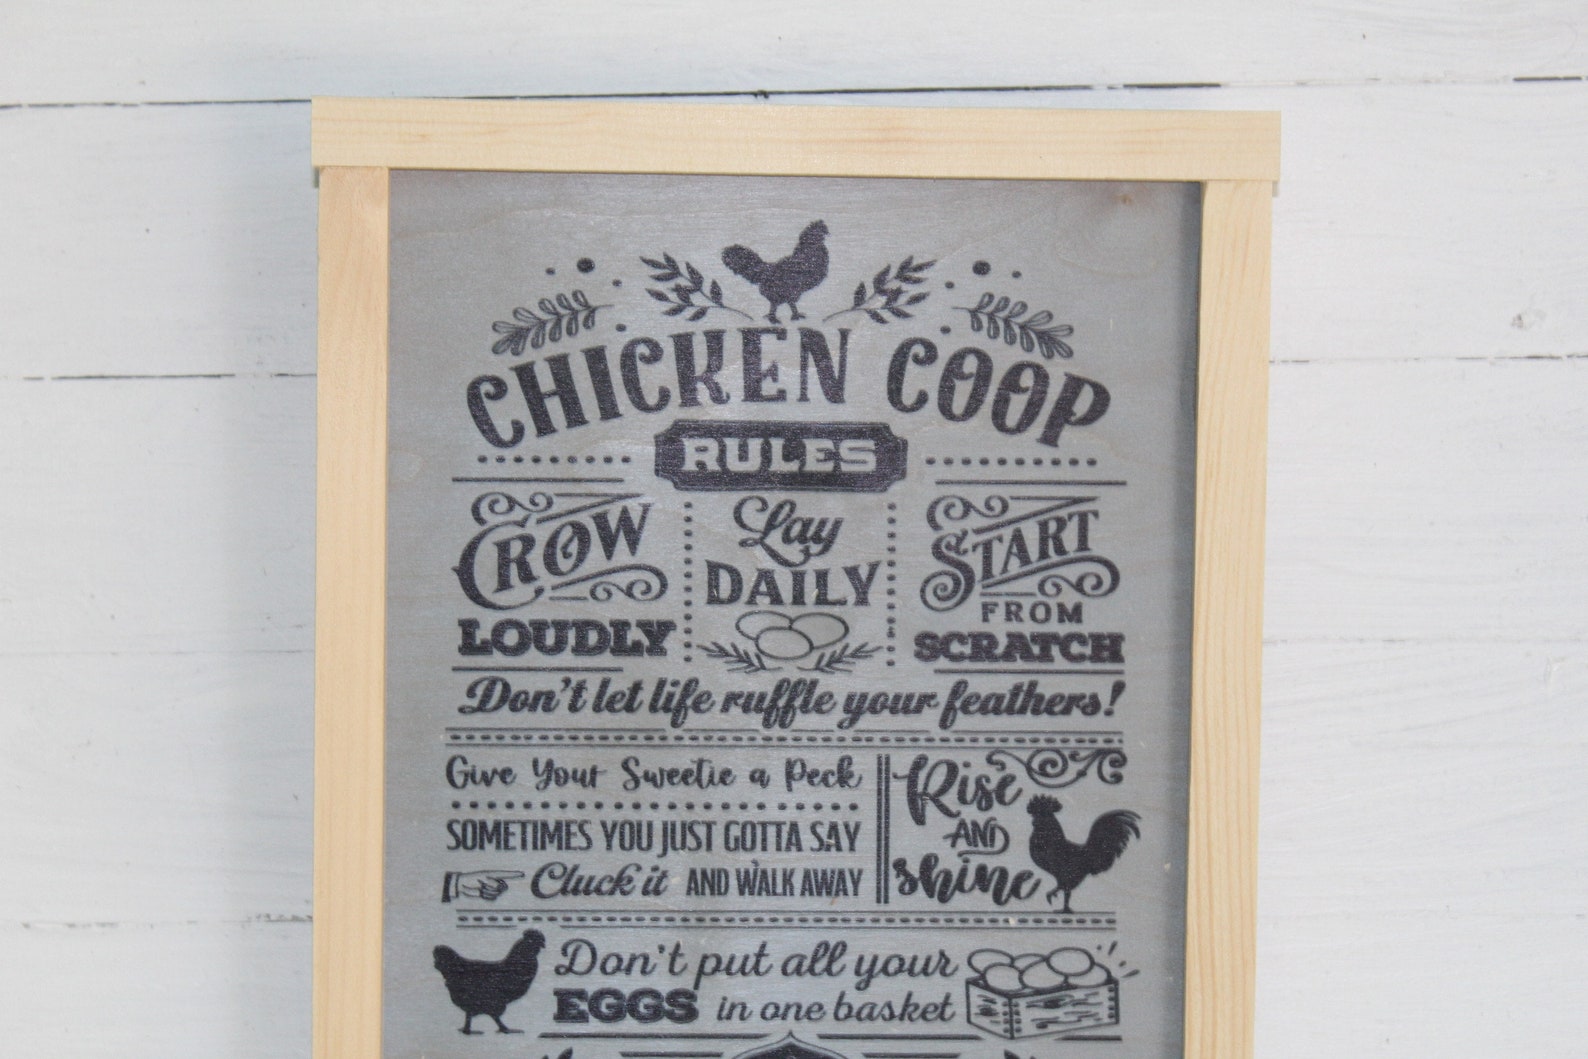 CHICKEN COOP
RULES
CROW
LOUDLY
Lay
DAILY
START
FROM
SCRATCH
Don't let life ruffle your feathers!
Give Your Sweetie a Peck
SOMETIMES YOU JUST GOTTA SAY
Cluck it AND WALK AWAY
Rise
AND
shine
Don't put all your
EGGS in one basket